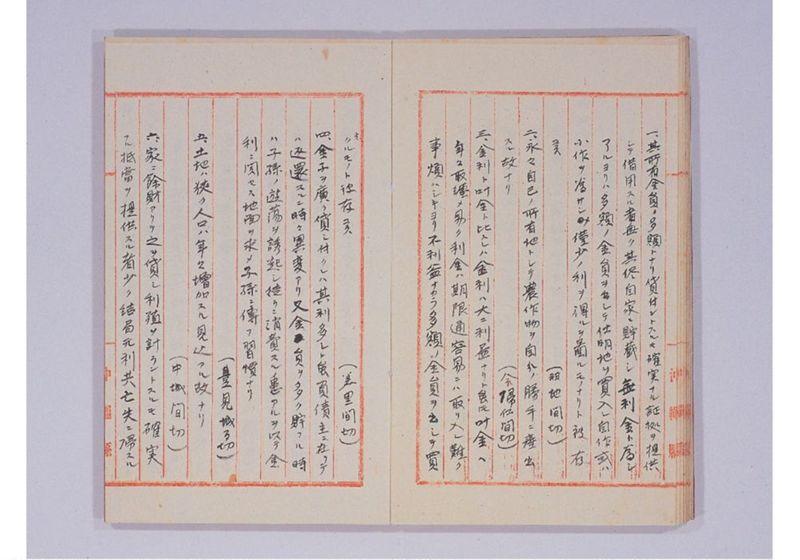 一、其所有金員ノ多額トナリ貸付ントスルモ確実ナル証拠ヲ提供
シテ借用スル者無ク其侭自家ニ貯蔵シ無利金ト為シ
アルヨリハ多額ノ金員ヲ出シテ仕明地ヲ買入レ自作或ハ
小作ヲ為サシメ僅少ノ利ヲ得ルヲ図ルモノナリト被存
候
(羽地間切)
二、永々自己ノ所有地トシテ農作物ヲ自分ノ勝手ニ産出
スル故ナリ
(今帰仁間切)
三、金利ト叶金ト比スレハ金利ハ大ニ利益ナリト雖モ叶金ハ
年々取纏メ易ク利金ハ期限通容易ニハ取リ入レ難ク
事煩ハシキヨリ不利益ナカラ多額ノ金員ヲ出シテ買
ハルモノト被存候
(美里間切)
四、金子ヲ廣ク貸シ付クレハ其利多シト雖負債主ニ在リテ
ハ返還スルニ時々異変アリ又金員ヲ多ク貯フル時
ハ子孫ノ遊蕩ヲ誘起シ徒ラニ消費スル患アルヲ以テ金
利ニ関セス地面ヲ求メ子孫ニ傳フ習慣ナリ
(豊見城間切)
五、土地ハ狭ク人口ハ年々増加スル見込アル故ナリ
(中城間切)
六、家ニ餘財アリ之ヲ貸シ利殖ヲ計ラントスルモ確実
ナル抵當ヲ提供スル者少ク結局元利共亡失ニ帰スル
沖縄縣
沖縄縣